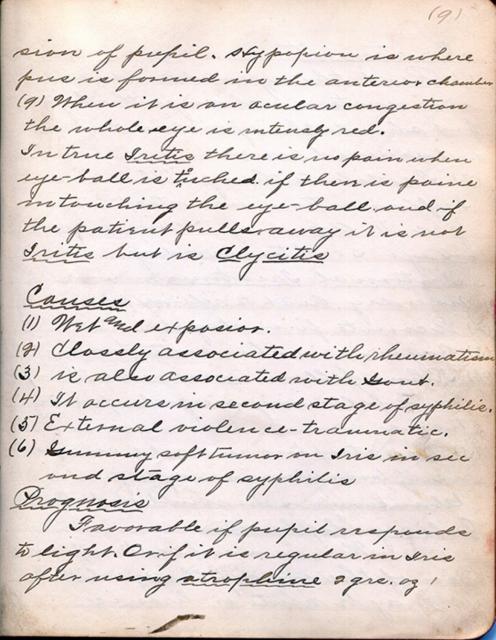 (9)
sion of pupil. Hypopion is where
pus is formed in the anterior chamber
(9) When it is an ocular congestion
the whole eye is intensly red.
In true Iritis there is no pain when
eye-ball is tuched. if then is paine
in touching the eye-ball and if
the patient pulls away it is not
Iritis but is Clycitis
Causes
(1) Wet and exposior.
(2) Clossly associated with rheumatism
(3) is also associated with Gout.
(4) It occurs in second stage of syphilis.
(5) External violence-traumatic.
(6) Gummy soft tumor on Iris in sec
ond stage of syphilis
Prognosis
Favorable if pupil responds
to light. Or if it is regular in Iris
after using atrophine 2 grs. oz 1